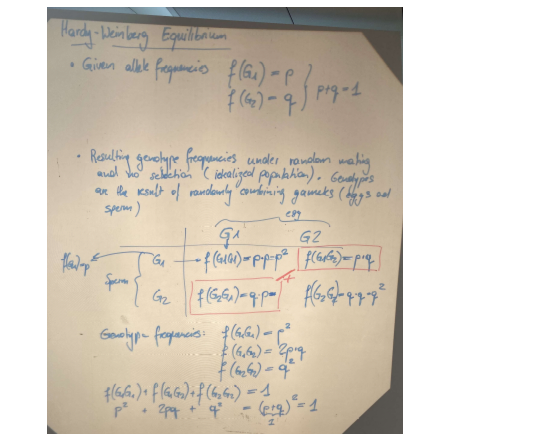 Hardy-Weinberg Equilibrium
• Given allele frequencies f(G1) = p
f(G2) = q } p+q=1
• Resulting genotype frequencies under random mating
and no selection (idealized population). Genotypes
are the result of randomly combining gametes (eggs and
sperm)
egg
G1 G2
f(G1)=p Sperm { G1 → f(G1G1)=p·p=p² f(G1G2)=p·q
+
G2 f(G2G1)=q·p= f(G2G2)=q·q=q²
- Genotype frequencies: f(G1G1) = p²
f(G1G2) = 2p·q
f(G2G2) = q²
f(G1G1)+f(G1G2)+f(G2G2) = 1
p² + 2pq + q² = (p+q)² = 1
1